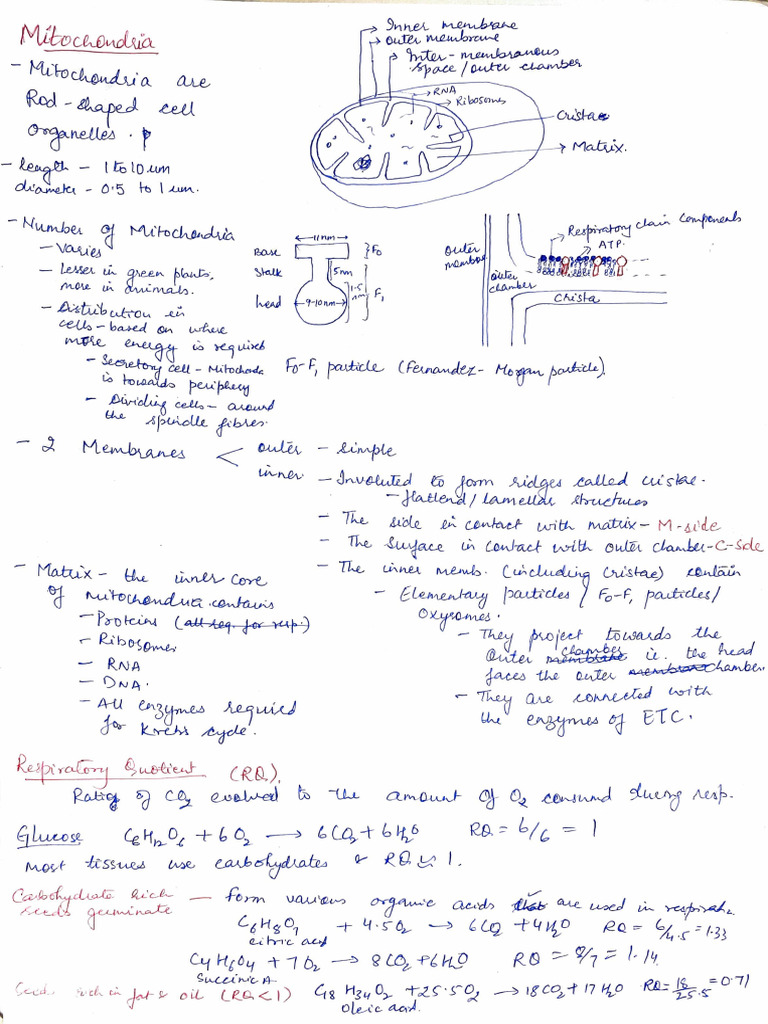 Mitochondria
- Mitochondria are
Rod-shaped cell
Organelles.
- length - 1 to 10 um
diameter - 0.5 to 1 um.
Inner membrane
outer membrane
Inter-membranous
space/outer chamber
RNA
Ribosomes
Cristae
Matrix.
- Number of Mitochondria
- Varies
- Lesser in green plants,
more in animals.
- Distribution in
cells - based on where
more energy is required
- Secretory cell - Mitochodr
is towards periphery
- Dividing cells - around
the spindle fibres.
11 nm
Base
F0
Stalk
5nm
head
9-10nm
F1
Outer
membrane
outer
chamber
Respiratory chain components
ATP.
Crista
F0-F1 particle (Fernandez-Morgan particle).
- 2 Membranes < outer - simple
inner - Involuted to form ridges called cristae.
- flatlend/lamellar structures
- The side in contact with matrix - M-side
- The surface in contact with outer chamber - C-Side
- The inner memb. (including cristae) contain
- Elementary particles / F0-F1 particles/
Oxysomes.
- They project towards the
Outer membrane chamber ie. the head
faces the outer membrane chamber.
- They are connected with
the enzymes of ETC.
- Matrix - the inner core
of mitochondria contains
- Proteins (all req. for resp.)
- Ribosomes
- RNA
- DNA.
- All enzymes required
for Krebs cycle.
Respiratory Quotient (RQ).
Ratio of CO2 evolved to the amount of O2 consumd during resp.
Glucose C6H12O6 + 6O2 → 6CO2 + 6H2O RQ = 6/6 = 1
most tissues use carbohydrates & RQ ≈ 1.
Carbohydrate rich seeds germinate - form various organic acids that are used in respiratn.
C6H8O7 + 4.5O2 → 6CO2 + 4H2O RQ = 6/4.5 = 1.33
citric acid
C4H6O4 + 7O2 → 8CO2 + 6H2O RQ = 8/7 = 1.14
Succinic A
Seeds rich in fat & oil (RQ<1) C18H34O2 + 25.5O2 → 18CO2 + 17H2O RQ = 18/25.5 = 0.71
Oleic acid.